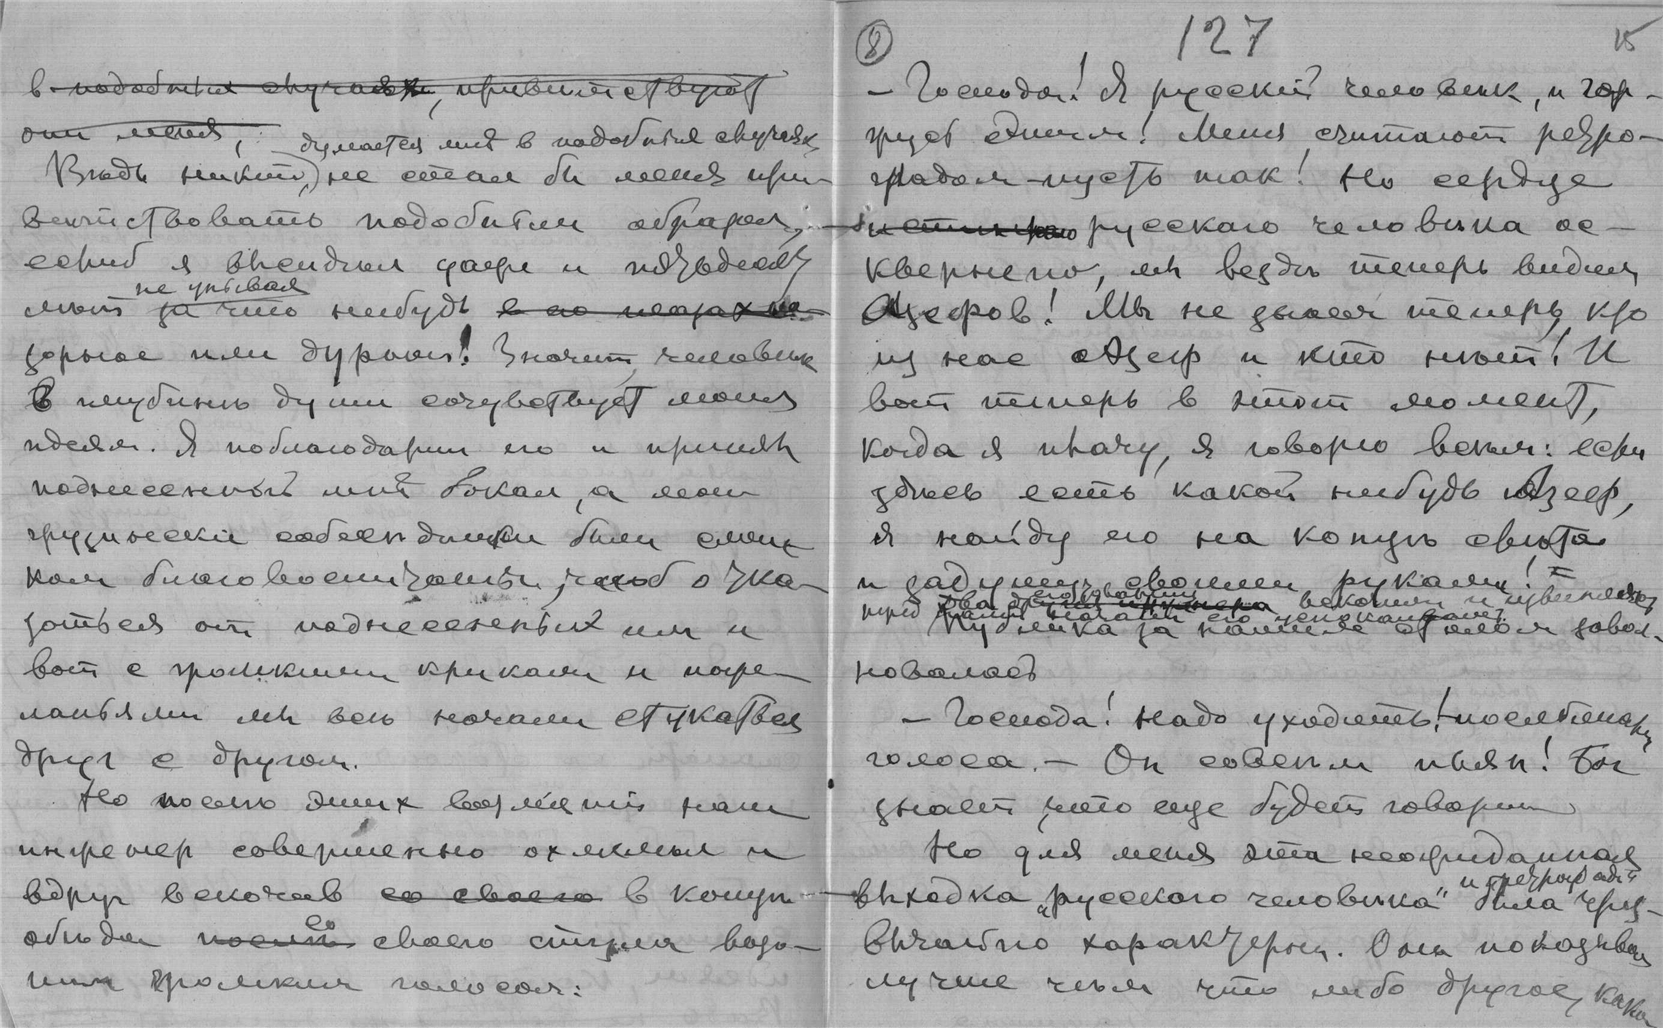 в подобных случаях, приветствуют
они меня,
думается мне в подобных случаях,
Ведь никто, не стал бы меня при-
ветствовать подобным образом,
если б я внешним
не унывая
за что нибудь
зорное или дурное! Значит, человек
В глубине души сочувствует моим
идеям. Я поблагодарил его и принял
поднесенный мне бокал, а мои
грузинские собеседники были слиш-
ком благовоспитаны, чтоб отка-
заться от поднесенных им и
вот с громкими криками и поже-
ланьями мы все начали стукаться
друг с другом.
Но после этих возлияний наш
инженер совершенно охмелел и
вдруг вскочив со своего в конце
обеда со своего стула возо-
пил громким голосом:
8
127
15
— Господа! Я русский человек, и гор-
жусь этим! Меня считают ретро-
градом — пусть так! Но сердце
истинного русского человека ос-
квернено, мы везде теперь видим
Азефов! Мы не знаем теперь, кто
из нас Азеф и кто нет! И
вот теперь в этот момент,
когда я плачу, я говорю всем: если
здесь есть какой нибудь Азеф,
я найду его на конце света
и задушу своими руками!
перед вскочили и
начали его успокаивать
Публика за нашим столом завол-
новалась
— Господа! Надо уходить! — послышались
голоса. — Он совсем пьян! Бог
знает, что еще будет говорить
Но для меня эта неожиданная
выходка „русского человека"
и ретрограда
была чрез-
вычайно характерна. Она показывала
лучше чем что либо другое, как